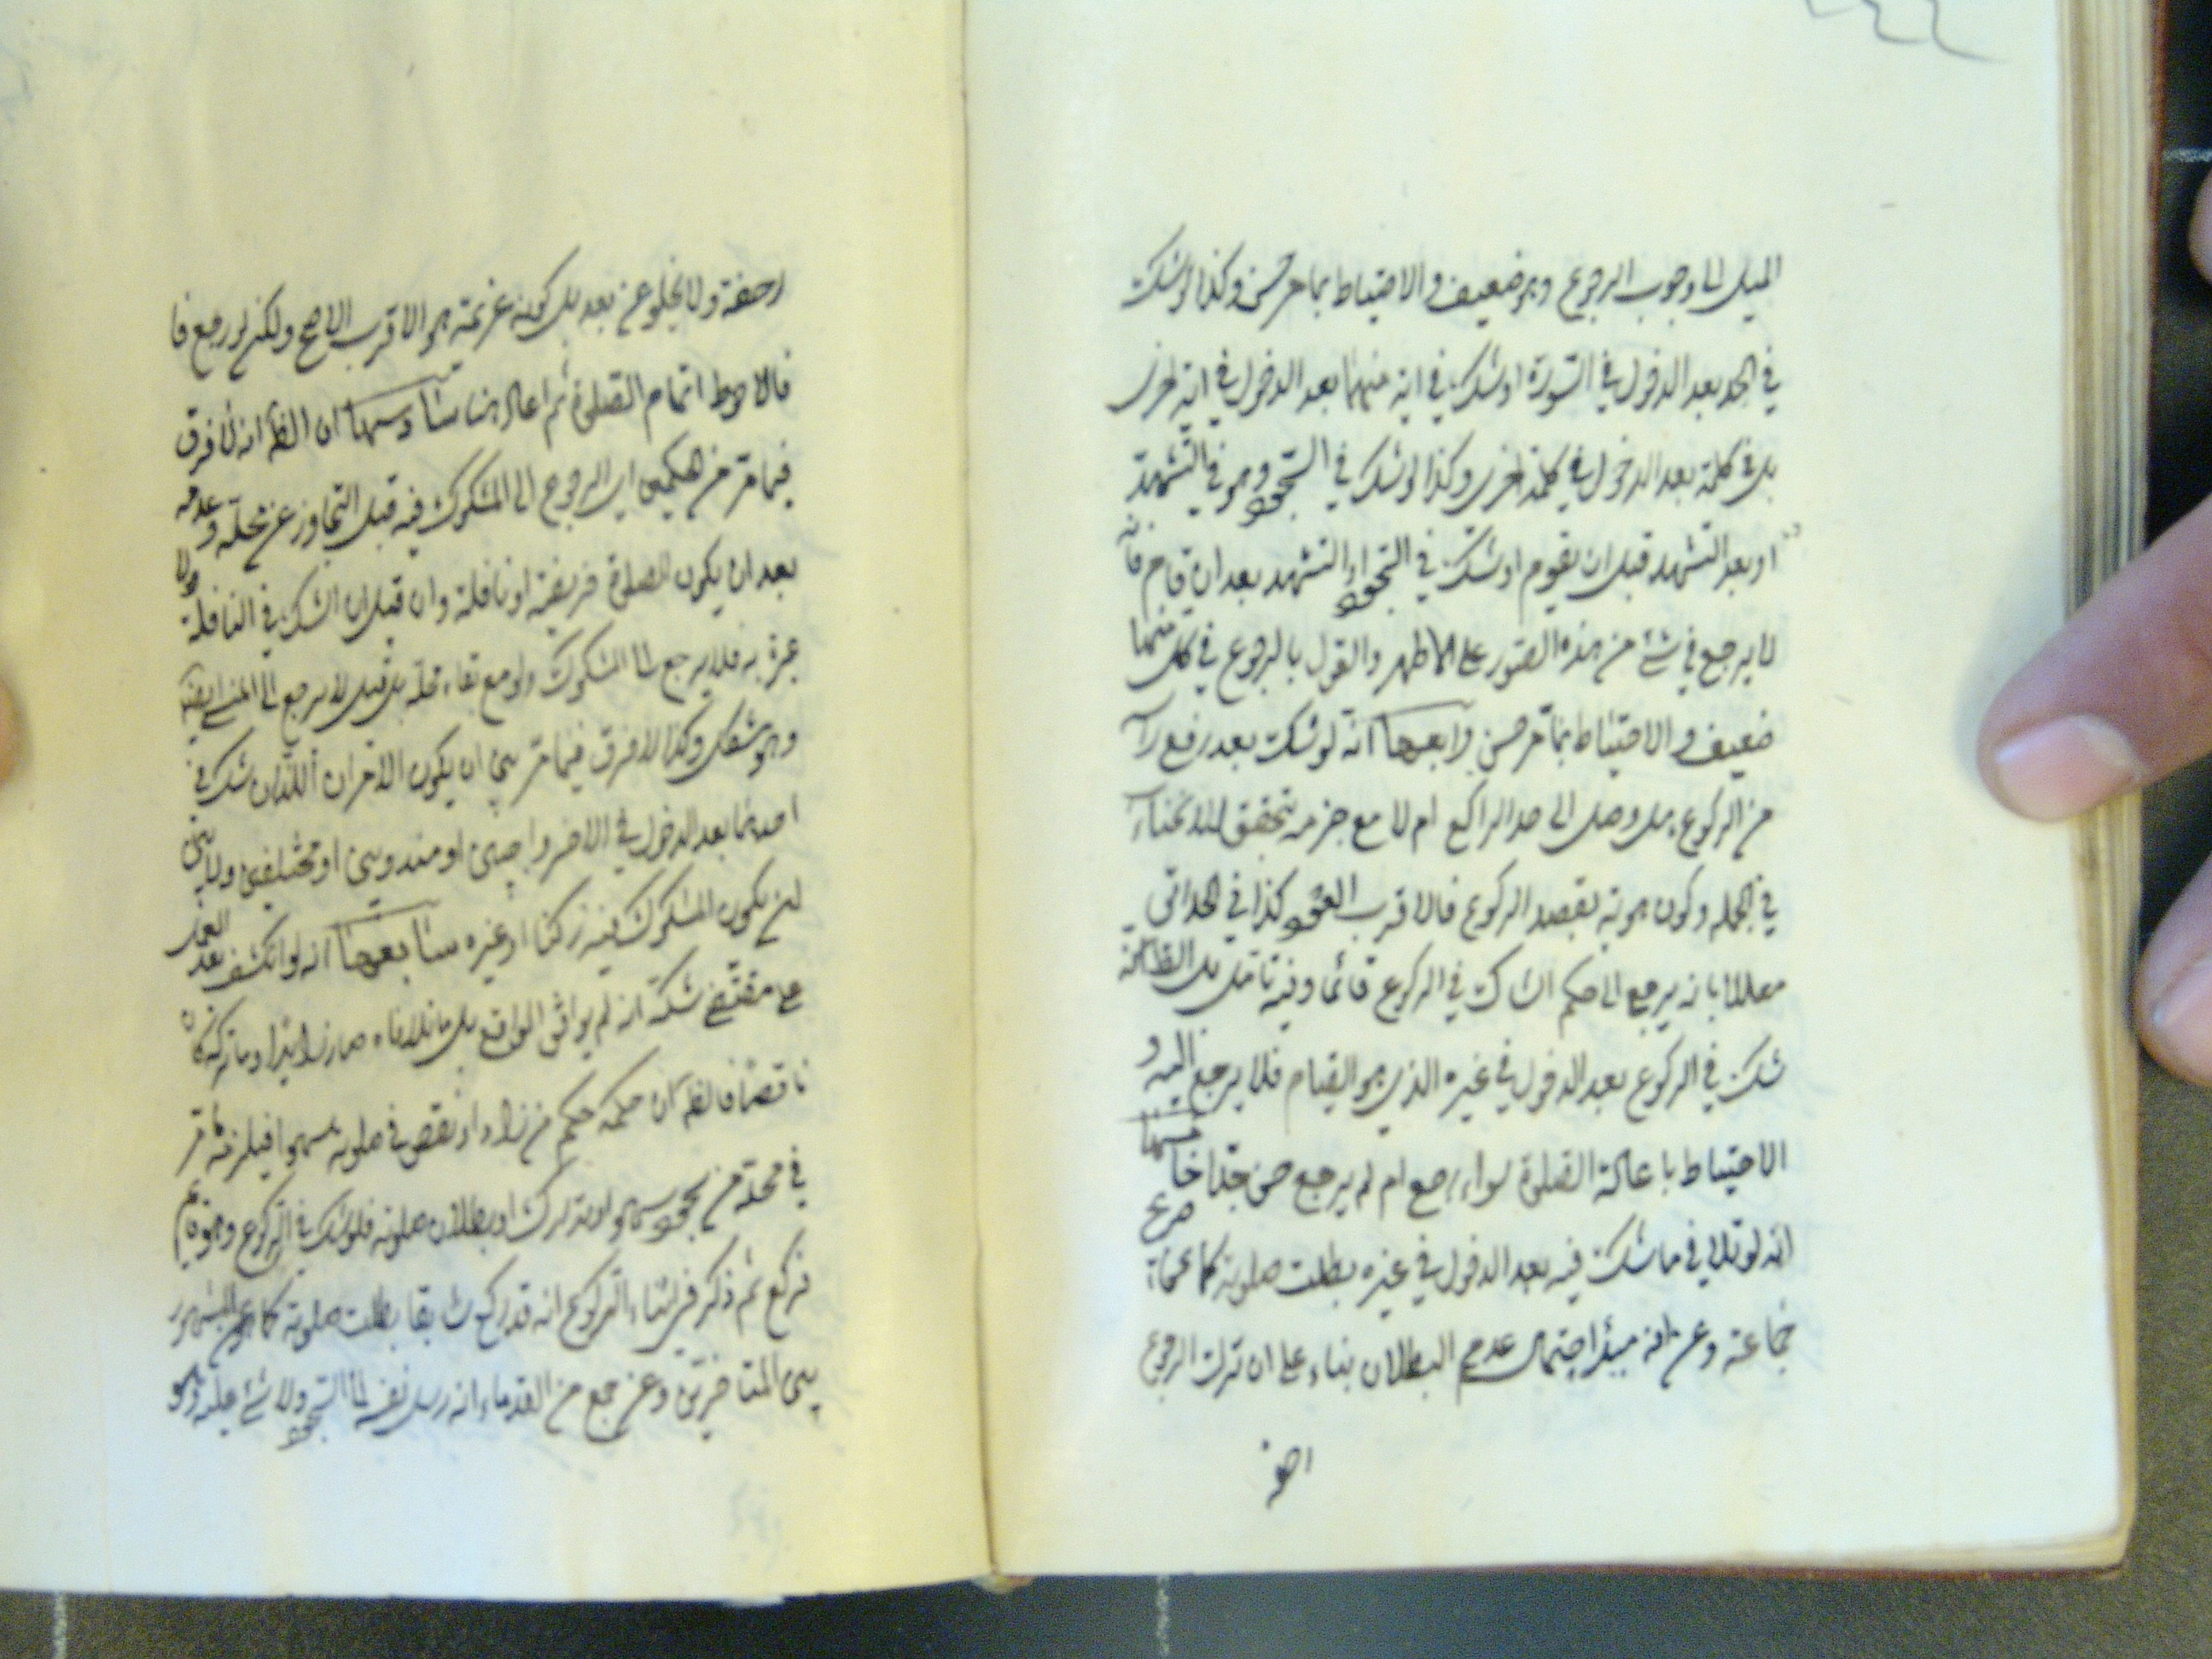 الميل الى وجوب الرجوع وهو ضعيف والاحتياط بما مر حسن وكذا لو شك
في الحمد بعد الدخول في السورة او شك في اية منهما بعد الدخول في اية اخرى
بل في كلمة بعد الدخول في كلمة اخرى وكذا لو شك في السجود وهو في التشهد
او بعد التشهد قبل ان يقوم او شك في السجود او التشهد بعد ان قام فانه
لا يرجع في شئ من هذه الصور على الاظهر والقول بالرجوع في كل منها
ضعيف والاحتياط بما مر حسن رابعها انه لو شك بعد رفع راسه
من الركوع هل وصل الى حد الراكع ام لا مع جزمه بتحقق الانحناء
في الجملة وكون هويه بقصد الركوع فالاقرب العود كذا في الحدائق
معللا بانه يرجع الى حكم الشاك في الركوع قائما وفيه تامل بل الظ انه
شك في الركوع بعد الدخول في غيره الذي هو القيام فلا يرجع اليه و
الاحتياط باعادة الصلوة سواء رجع ام لم يرجع حسن جدا خامسها
انه لو تلافى ما شك فيه بعد الدخول في غيره بطلت صلوته كما صرح به
جماعة وعن احتمال عدم البطلان بناء على ان ترك الرجوع
رخصة ولا يخلو عن بعد بل كونه عزيمة هو الاقرب الاصح ولكن لو رجع فا
فالاحوط اتمام الصلوة ثم اعادتها سادسها ان الظ انه لا فرق
فيما مر من الحكمين اي الرجوع الى المشكوك فيه قبل التجاوز عن محله وعدمه
بعد ان يكون الصلوة فريضة او نافلة وان قيل ان الشك في النافلة لا
عبرة به فلا يرجع الى المشكوك ولو مع بقاء محله بل قيل لا يرجع الى المنسي ايضا
وهو مشكل وكذا لا فرق فيما مر بين ان يكون الامران اللذان شك في
احدهما بعد الدخول في الاخر واجبين او مندوبين او مختلفين ولا بين
ان يكون المشكوك فيه ركنا او غيره سابعها انه لو انكشف بعد العمل
على مقتضى شكه انه لم يوافق الواقع بل ما تلافاه صار زائدا وما تركه كان
ناقصا فالظ ان حكمه حكم من زاد او نقص في صلوته سهوا فيلزمه ما مر
في محله من سجود سهو او تدارك او بطلان صلوته فلو شك في الركوع وهو قائم
فركع ثم ذكر في اثناء الركوع انه قد ركع سابقا بطلت صلوته كما هو المشهور
بين المتاخرين وعن جمع من القدماء انه يرسل نفسه الى السجود ولا شئ عليه وهو